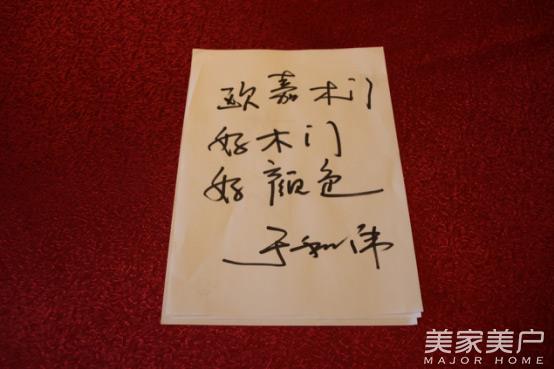 欧嘉木门
好木门
好颜色
于和伟
美家美户
MAJOR HOME